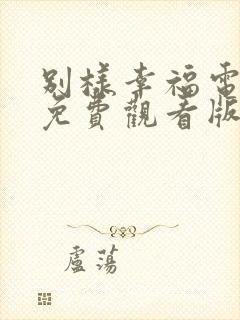 別樣幸福電
免費觀看版
盧蕩